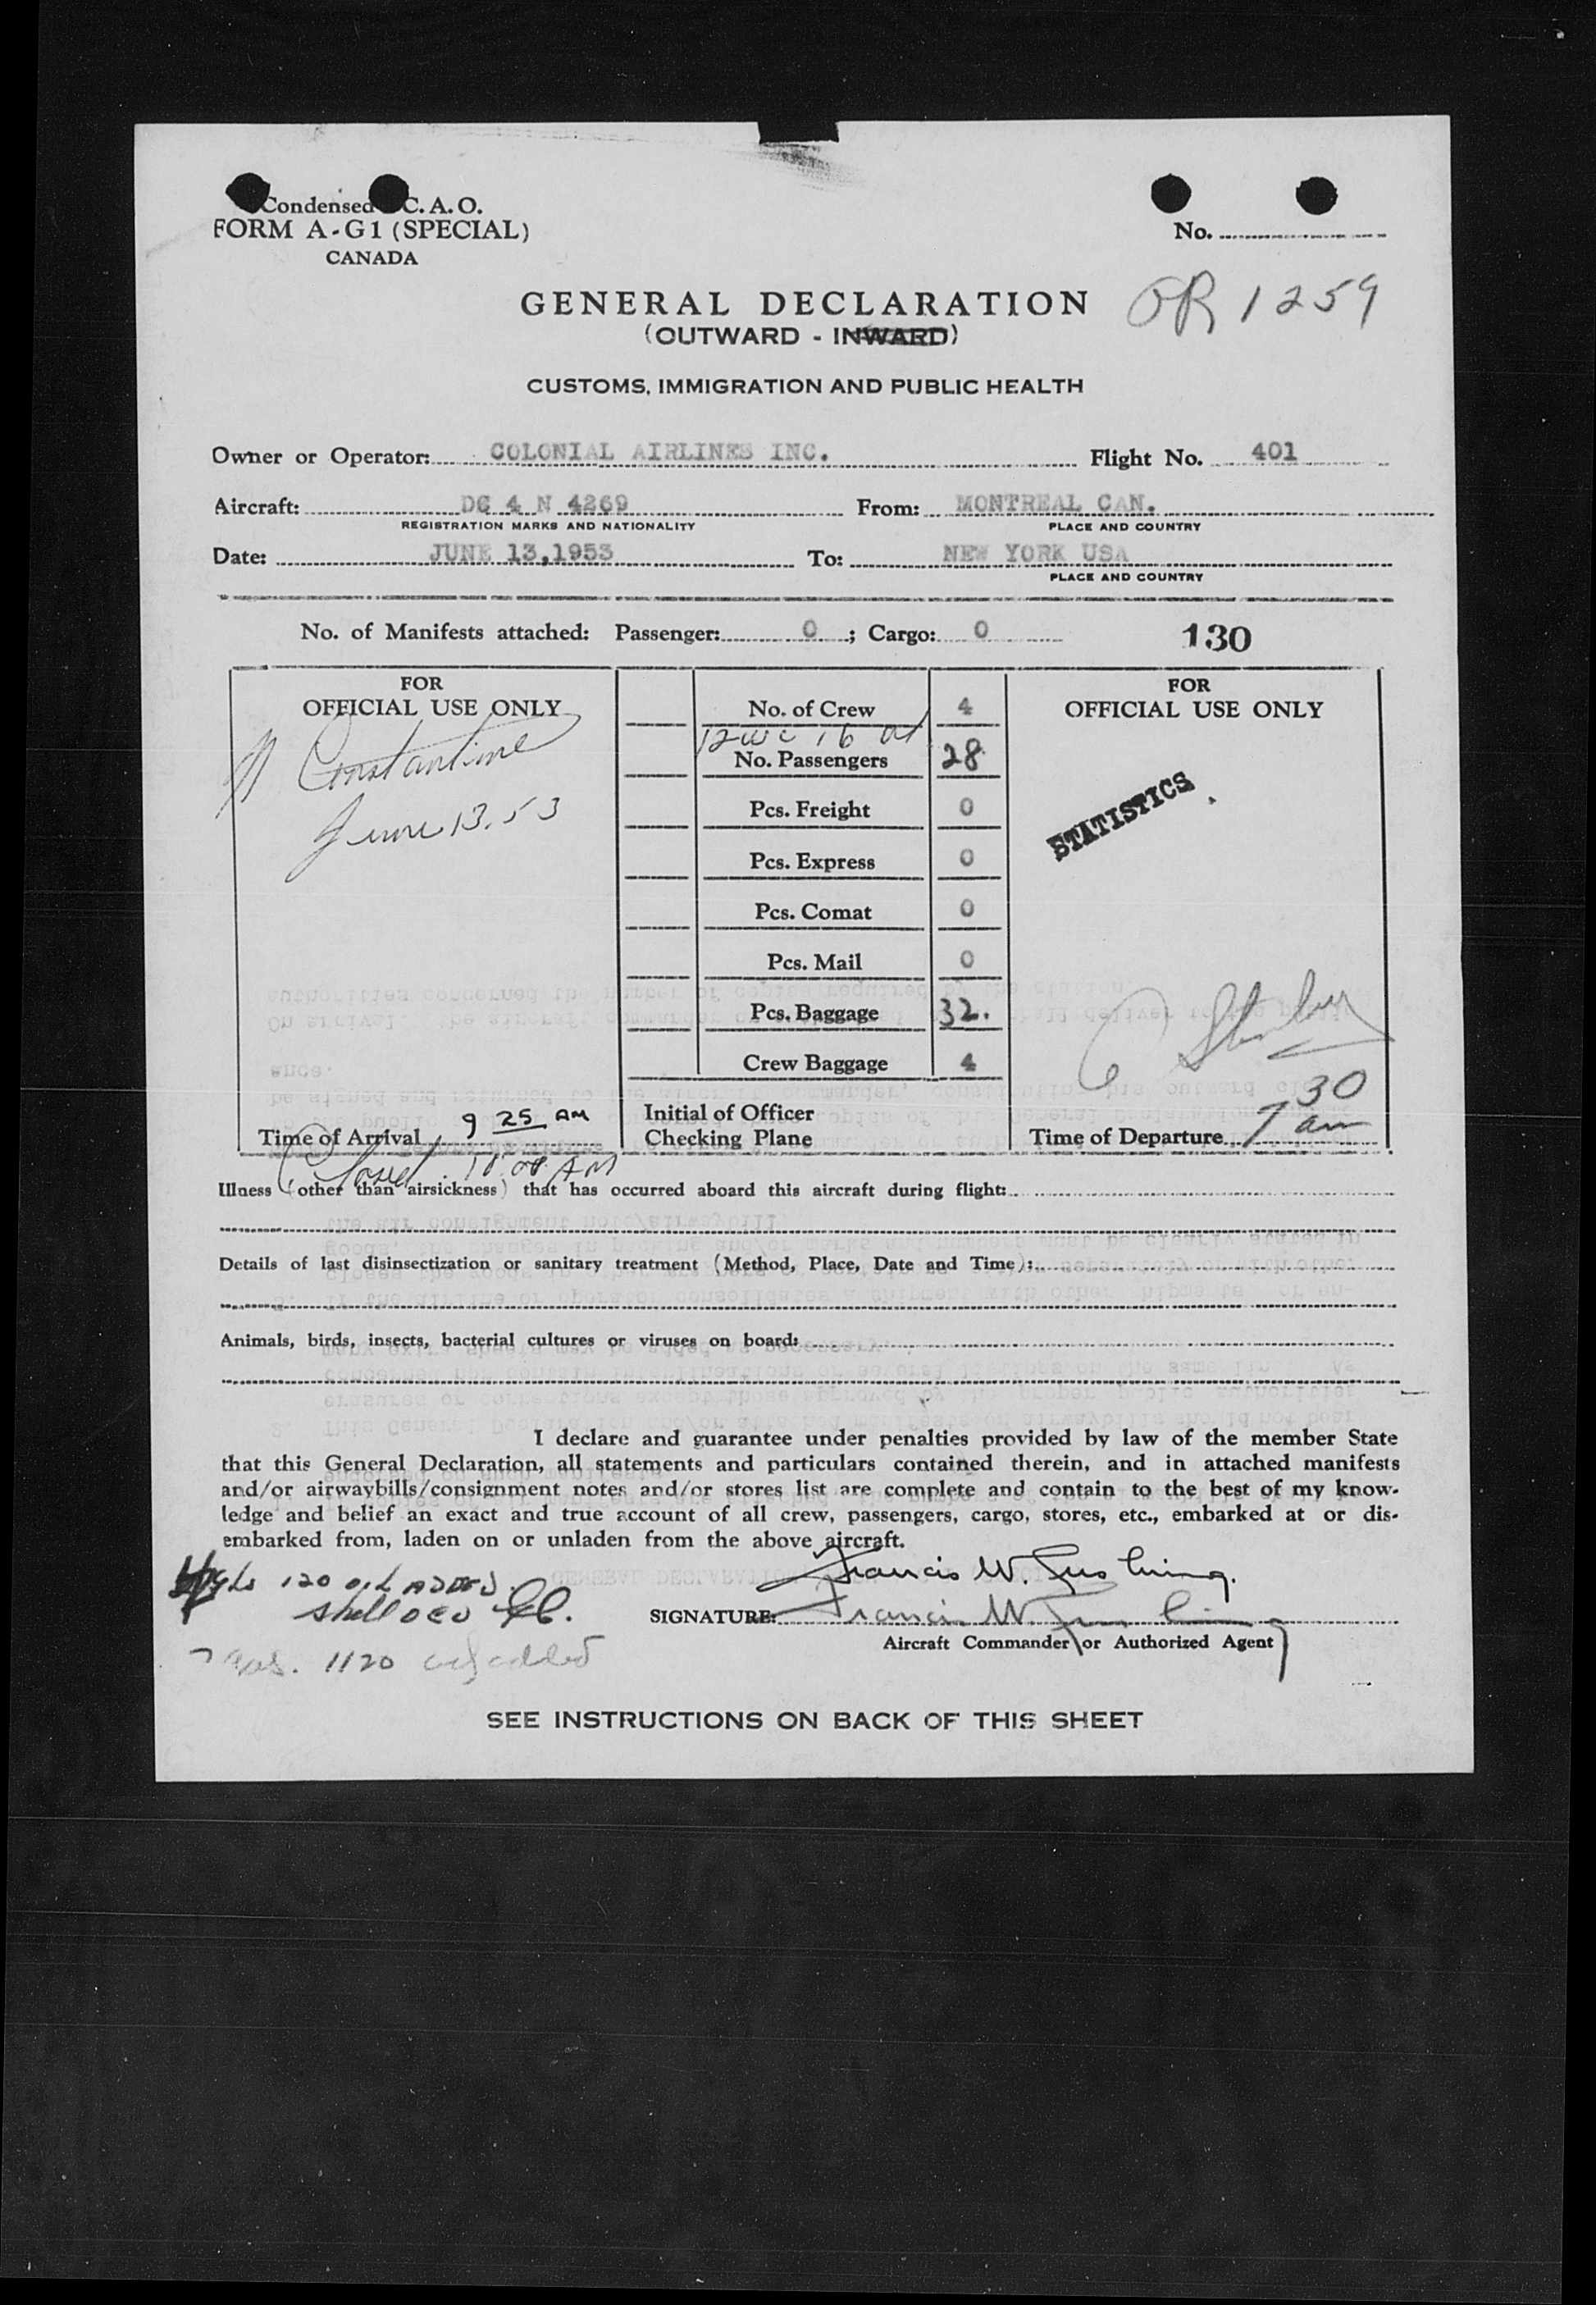 Condensed C. A. O.
FORM A-G1 (SPECIAL)
CANADA
No.
OR 1259
GENERAL DECLARATION
(OUTWARD - INWARD)
CUSTOMS, IMMIGRATION AND PUBLIC HEALTH
Owner or Operator: COLONIAL AIRLINES INC. Flight No. 401
Aircraft: DC 4 N 4269 From: MONTREAL CAN.
REGISTRATION MARKS AND NATIONALITY PLACE AND COUNTRY
Date: JUNE 13,1953 To: NEW YORK USA
PLACE AND COUNTRY
No. of Manifests attached: Passenger: 0 ; Cargo: 0 130
FOR
OFFICIAL USE ONLY
Constantine
June 13.53
Time of Arrival 9 25 AM
No. of Crew 4
No. Passengers 28
Pcs. Freight 0
Pcs. Express 0
Pcs. Comat 0
Pcs. Mail 0
Pcs. Baggage 32.
Crew Baggage 4
Initial of Officer
Checking Plane
FOR
OFFICIAL USE ONLY
STATISTICS
Time of Departure 7 30 am
AM
Illness (other than airsickness) that has occurred aboard this aircraft during flight:
Details of last disinsectization or sanitary treatment (Method, Place, Date and Time):
Animals, birds, insects, bacterial cultures or viruses on board:
I declare and guarantee under penalties provided by law of the member State
that this General Declaration, all statements and particulars contained therein, and in attached manifests
and/or airwaybills/consignment notes and/or stores list are complete and contain to the best of my know-
ledge and belief an exact and true account of all crew, passengers, cargo, stores, etc., embarked at or dis-
embarked from, laden on or unladen from the above aircraft.
120 oil ADDED.
Shell
Francis W.
SIGNATURE: Francis W.
Aircraft Commander or Authorized Agent
Gas. 1120 added
SEE INSTRUCTIONS ON BACK OF THIS SHEET